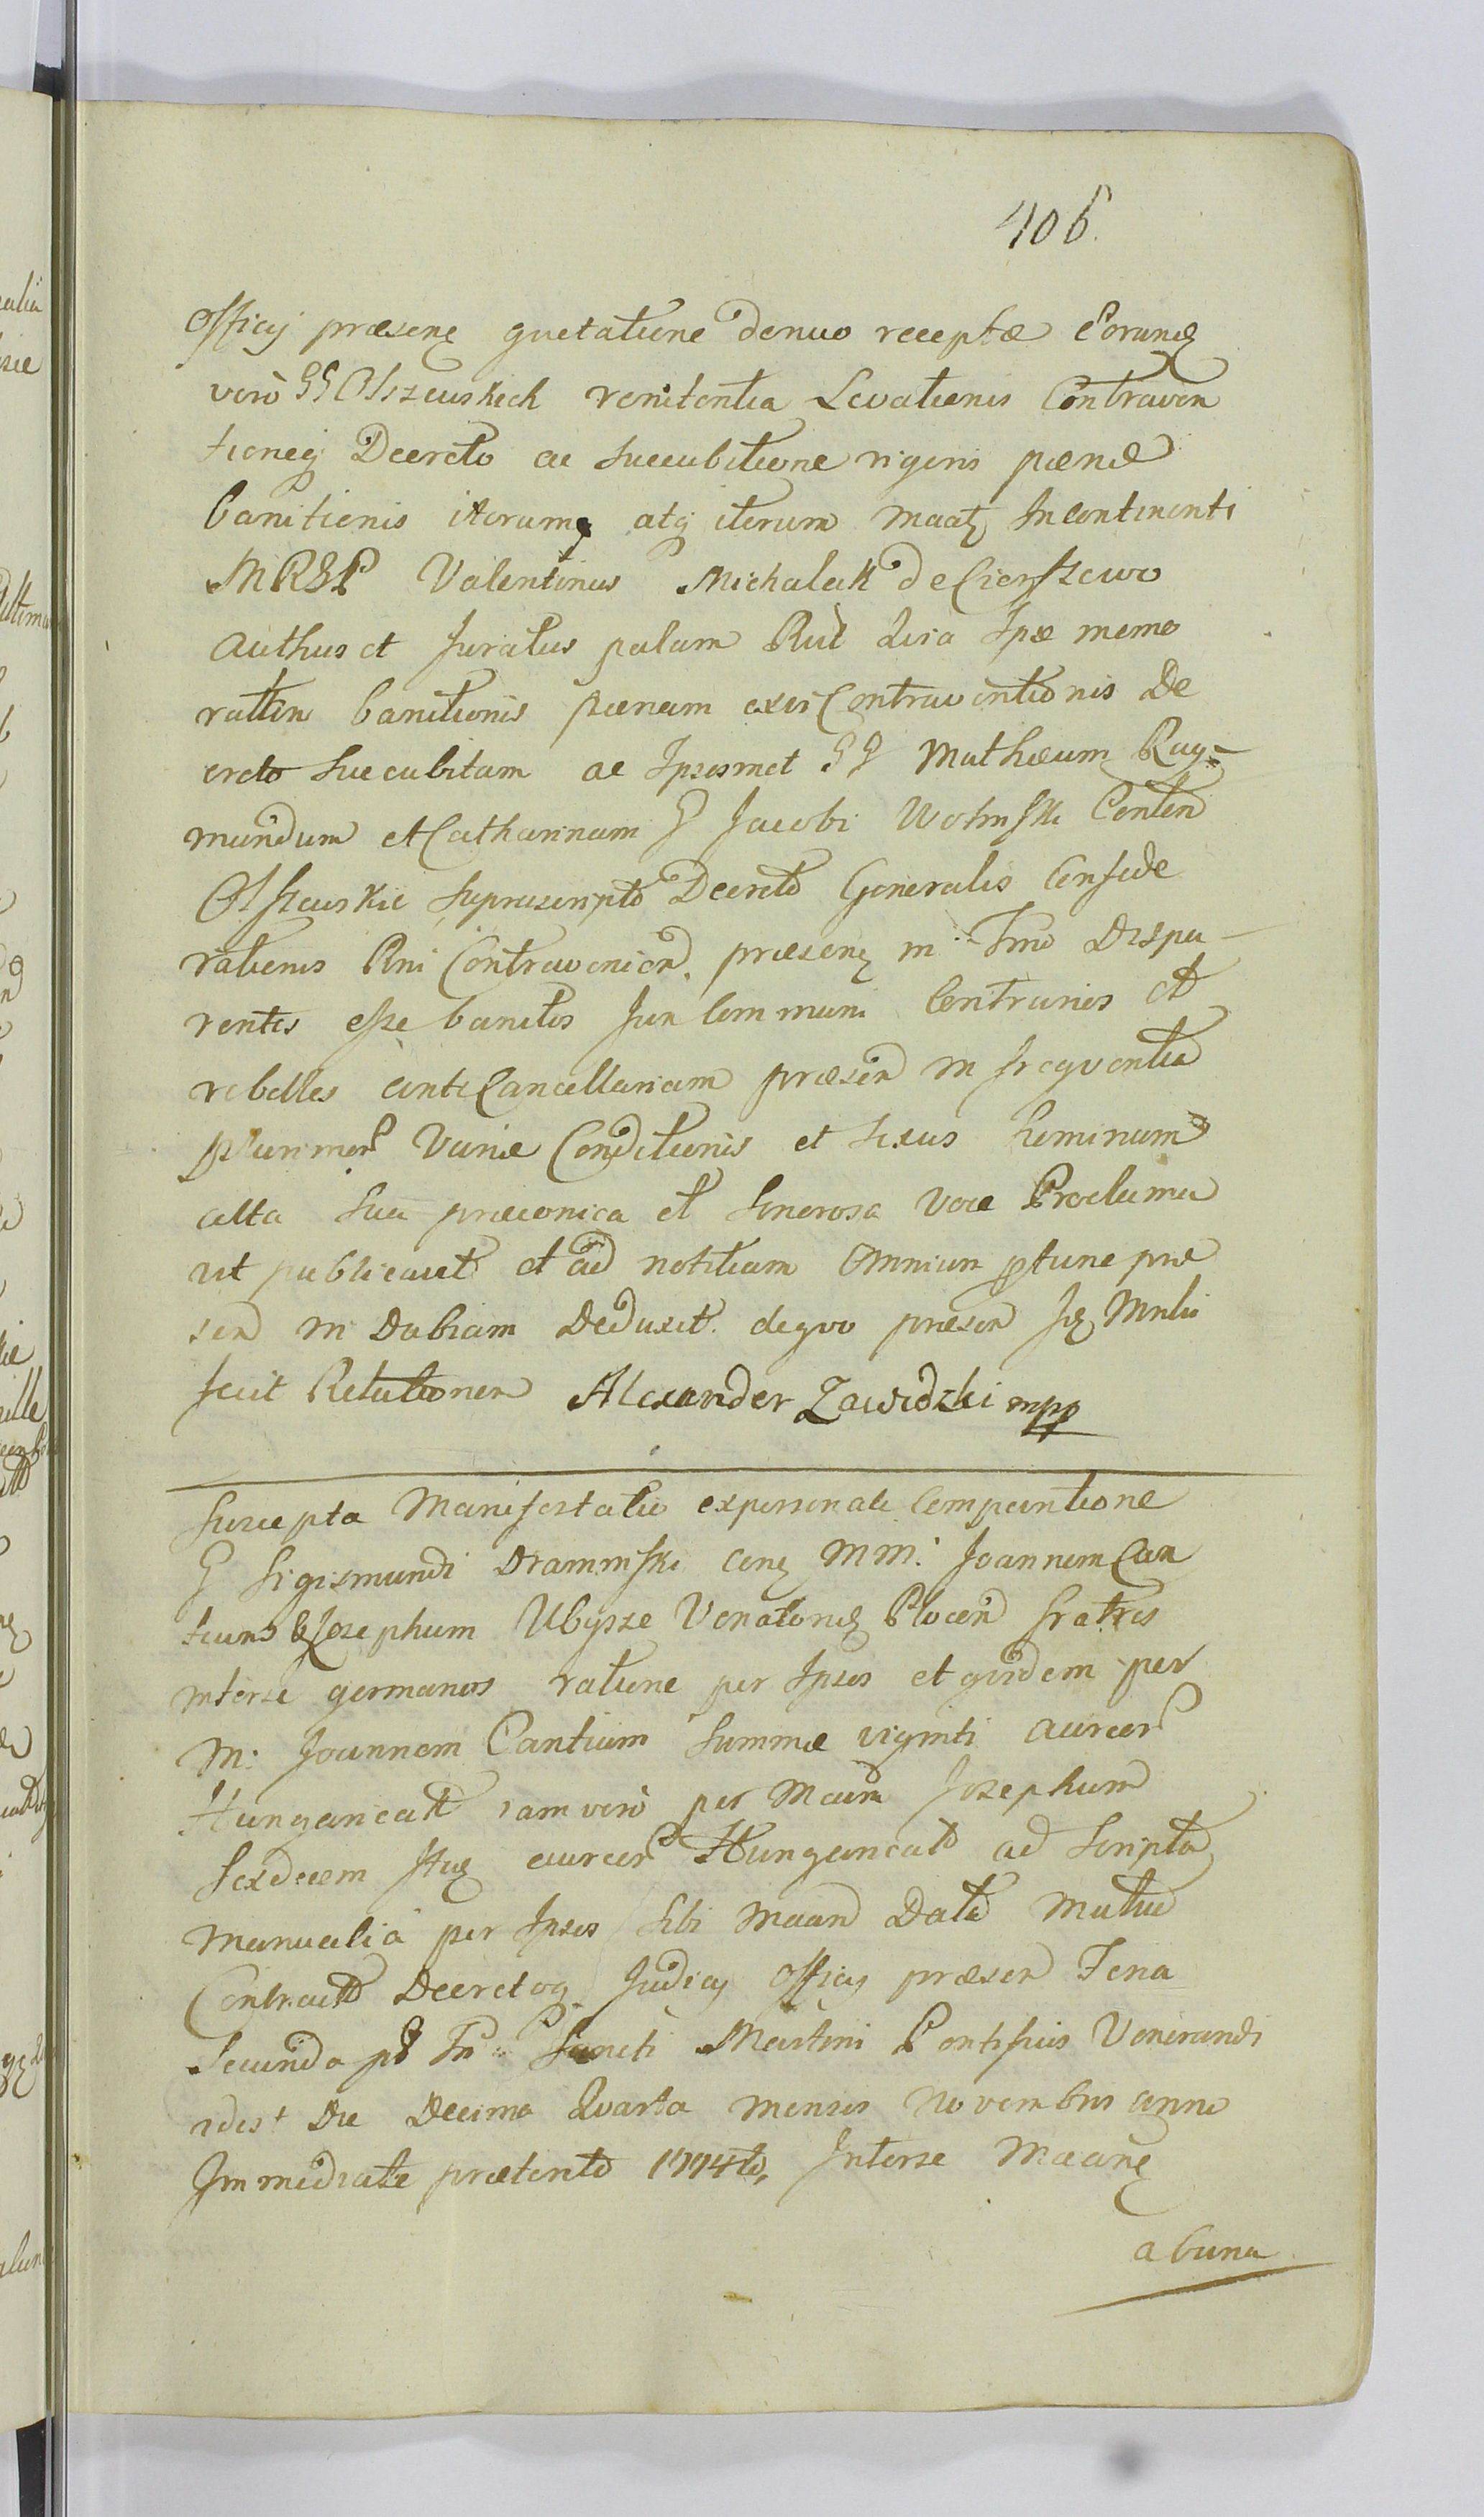 406.
Officÿ præsenꝫ quetatione denuo receptæ Eorunꝫ
verò GG Olszewskich renitentia Levationis Contraven
tioneq Decreto ac succubitione rigoris pænæ
banitionis iterumq atq iterum maatꝫ Incontinenti
MRGP Valentinus Michalak de Cierszewo
Authus et Juratus palam Rūt quia Ipse memo
rattm banitionis pænam exvi Contraventionis De
creto succubitam ac Ipsosmet GG Mathæum Ray=
mundum et Catharinam G Jacobi Wolinski Conten
Olszewskie supra scripto Decreto Generalis Confæde
rationis Rni Contravenien. præsenꝫ in Tmo Dispa-
rentes esse banitos Juri Communi Contrarios et
rebelles ante Cancellariam præsen in frequentia
plurimor Variæ Conditionis et sexus hominum
alta sua præconica et sonorosa voce Proclama
vit publicavit et ad notitiam Omnium ptunc præ
sen in Dubiam Deduxit. dequo præsen Jꝫ Mnli
fecit Relationem Alexander Zawidzki mpp
Suscepta Manifestatio expersonali Comparitione
G Sigismundi Dramiński conꝫ MM: Joannem Can
tium & Josephum Ubysze Venatoridꝫ Plocen fratres
interse germanos ratione per Ipsos et quidem per
M: Joannem Cantium summæ viginti aureor
Hungaricatt iam verò per Maum Josephum
sexdecem Ituꝫ aureor Hungaricatt ad scripta
manualia per Ipsos sibi Maan Data mutue
Contractt Decretoq Judicÿ Officÿ præsen Feria
Secunda pt Fn: Sancti Martini Pontificis Venerandi
idest Die Decima Quarta mensis Novembris anno
Immediate præterito 1774to, Interse Maanꝫ
abuna